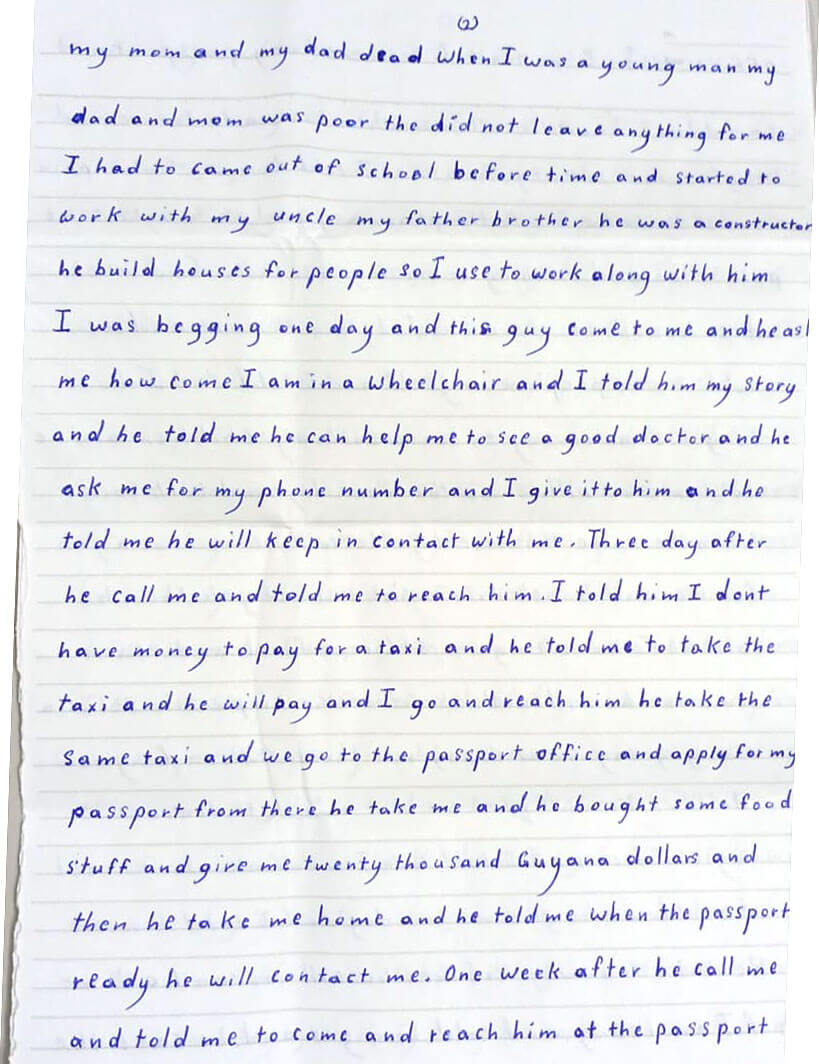 (2)
my mom and my dad dead when I was a young man my
dad and mom was poor the did not leave anything for me
I had to came out of school before time and started to
work with my uncle my father brother he was a constructor
he build houses for people so I use to work along with him
I was begging one day and this guy come to me and he ask
me how come I am in a wheelchair and I told him my story
and he told me he can help me to see a good doctor and he
ask me for my phone number and I give it to him and he
told me he will keep in contact with me. Three day after
he call me and told me to reach him. I told him I dont
have money to pay for a taxi and he told me to take the
taxi and he will pay and I go and reach him he take the
same taxi and we go to the passport office and apply for my
passport from there he take me and he bought some food
stuff and give me twenty thousand Guyana dollars and
then he take me home and he told me when the passport
ready he will contact me. One week after he call me
and told me to come and reach him at the passport